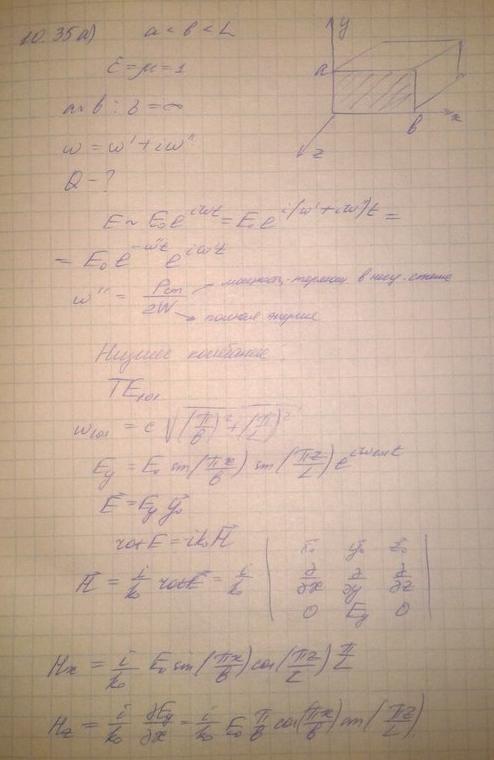 10.35а) a < b < L
ε = μ = 1
a×b : σ = ∞
ω = ω' + iω''
Q - ?
E ~ E₀e^{iωt} = E₀e^{i(ω'+iω'')t} =
= E₀e^{-ω''t} e^{iω't}
ω'' = Pст/2W → мощность потерь в стенке
→ полная энергия
Низшее колебание
TE₁₀₁
ω₁₀₁ = c √((π/b)² + (π/L)²)
Ey = E₀ sin(πx/b) sin(πz/L) e^{iω₁₀₁t}
E⃗ = Ey y⃗₀
rot E = ik₀H⃗
H⃗ = i/k₀ rot E⃗ = i/k₀ | x⃗₀ y⃗₀ z⃗₀ |
| ∂/∂x ∂/∂y ∂/∂z |
| 0 Ey 0 |
Hx = i/k₀ E₀ sin(πx/b) cos(πz/L) π/L
Hz = i/k₀ ∂Ey/∂x = i/k₀ E₀ π/b cos(πx/b) sin(πz/L)
y
a
b
x
z